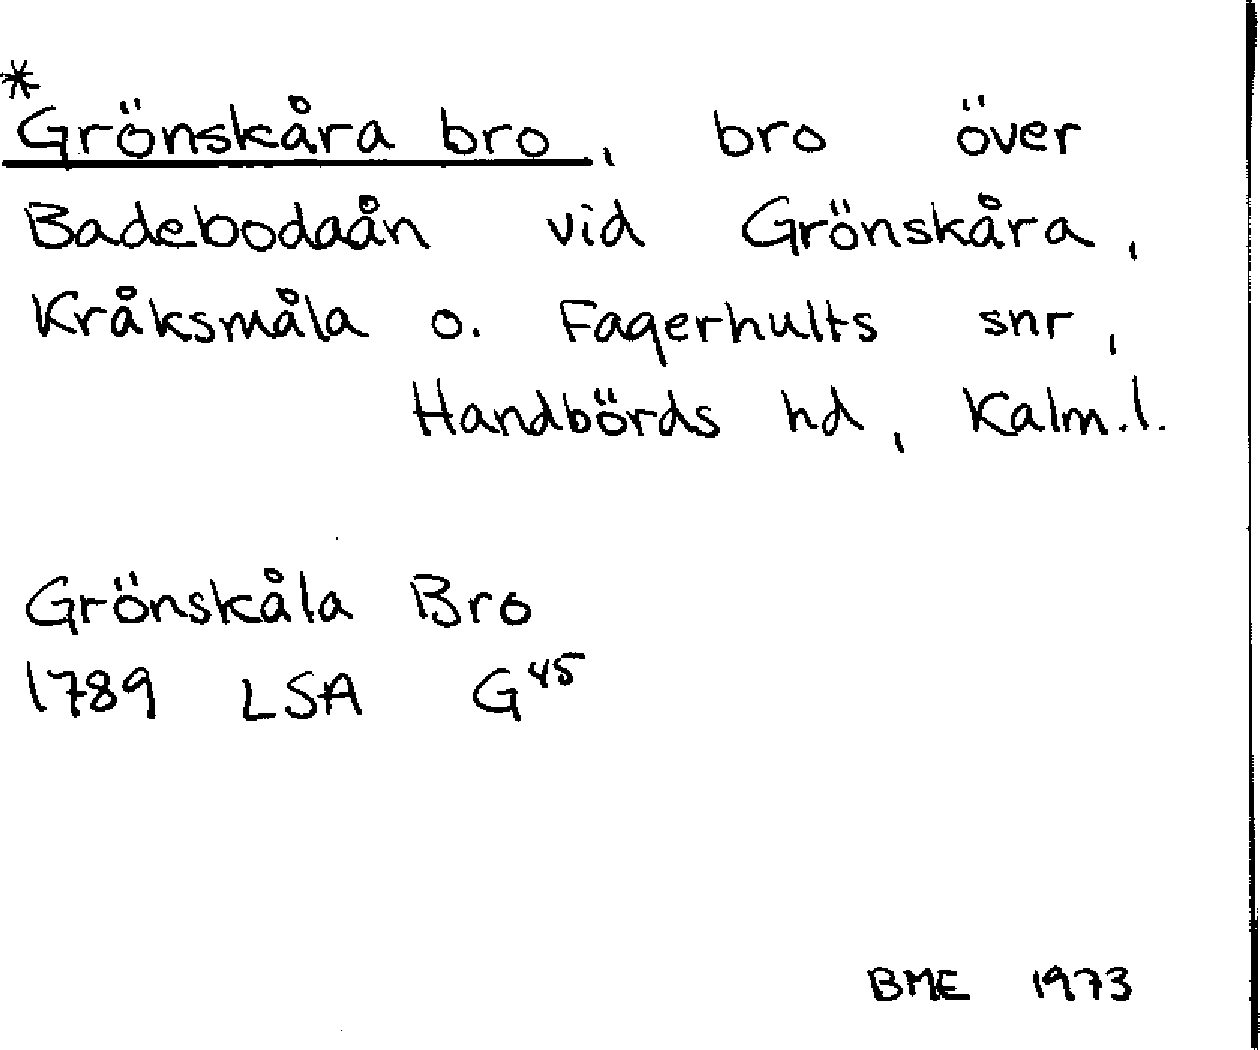 *
Grönskåra bro, bro över
Badebodaån vid Grönskåra,
Kråksmåla o. Fagerhults snr,
Handbörds hd, Kalm.l.
Grönskåla Bro
1789 LSA G45
BME 1973